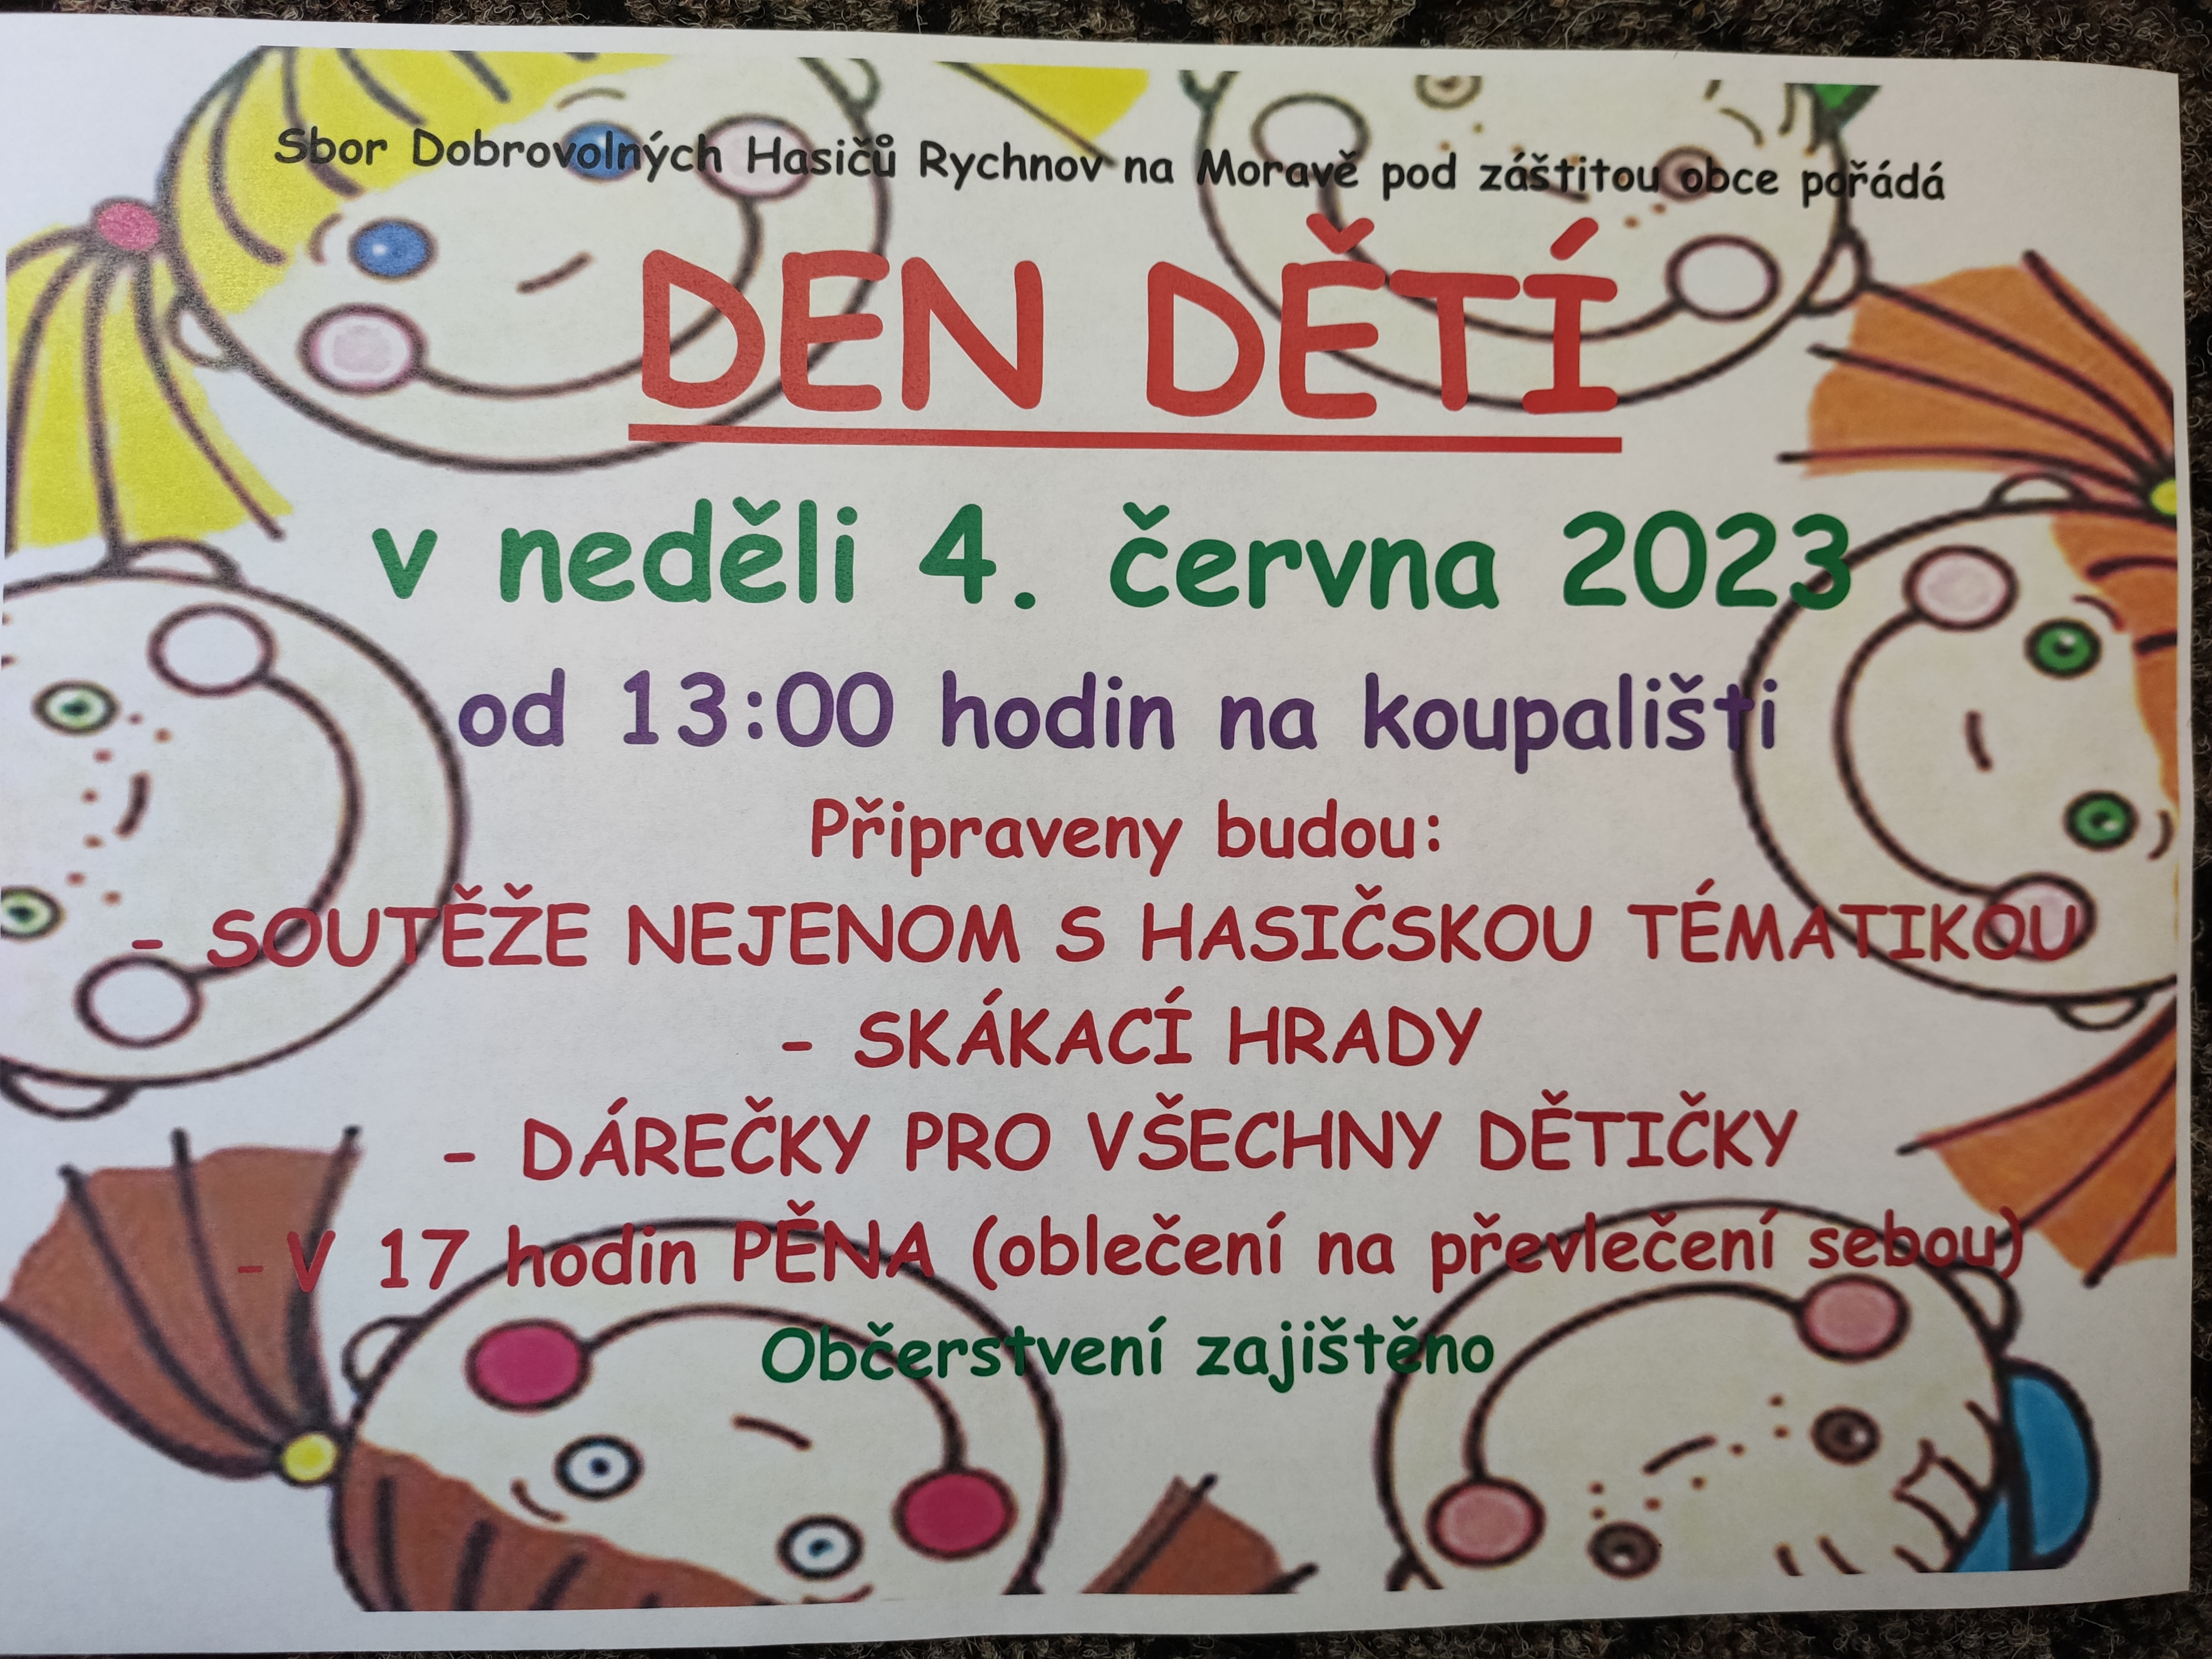 Sbor Dobrovolných Hasičů Rychnov na Moravě pod záštitou obce pořádá
DEN DĚTÍ
v neděli 4. června 2023
od 13:00 hodin na koupališti
Připraveny budou:
- SOUTĚŽE NEJENOM S HASIČSKOU TÉMATIKOU
- SKÁKACÍ HRADY
- DÁREČKY PRO VŠECHNY DĚTIČKY
- V 17 hodin PĚNA (oblečení na převlečení sebou)
Občerstvení zajištěno